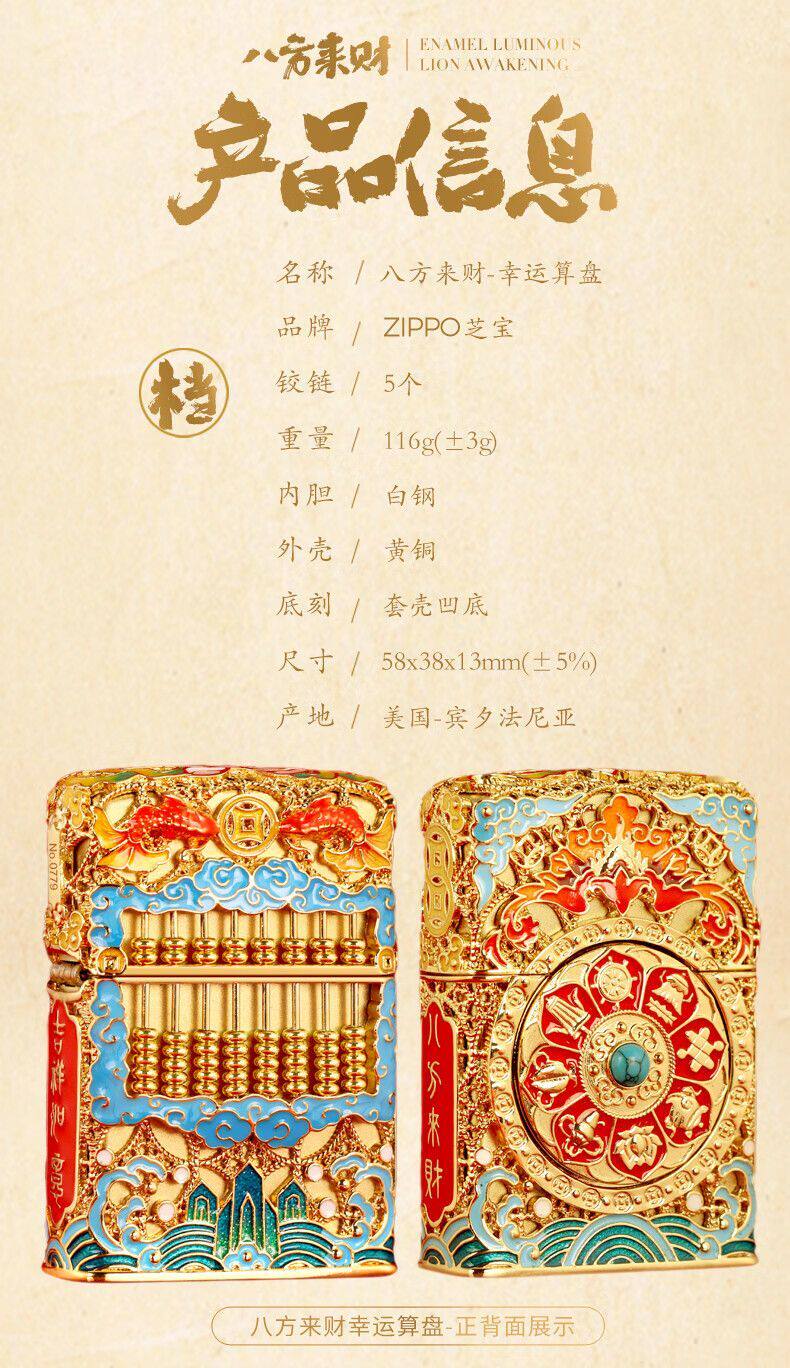 八方来财
ENAMEL LUMINOUS
LION AWAKENING
产品信息
档
名称 / 八方来财-幸运算盘
品牌 / ZIPPO芝宝
铰链 / 5个
重量 / 116g(±3g)
内胆 / 白钢
外壳 / 黄铜
底刻 / 套壳凹底
尺寸 / 58x38x13mm(±5%)
产地 / 美国-宾夕法尼亚
No.0779
吉祥如意
八方來財
八方来财幸运算盘-正背面展示